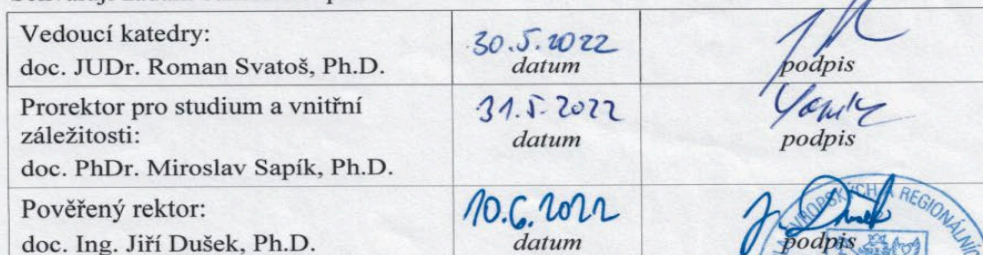 Vedoucí katedry:
doc. JUDr. Roman Svatoš, Ph.D.
30.5.2022
datum
podpis
Prorektor pro studium a vnitřní
záležitosti:
doc. PhDr. Miroslav Sapík, Ph.D.
31.5.2022
datum
podpis
Pověřený rektor:
doc. Ing. Jiří Dušek, Ph.D.
10.6.2022
datum
podpis
EVROPSKÝCH A REGIONÁLNÍCH